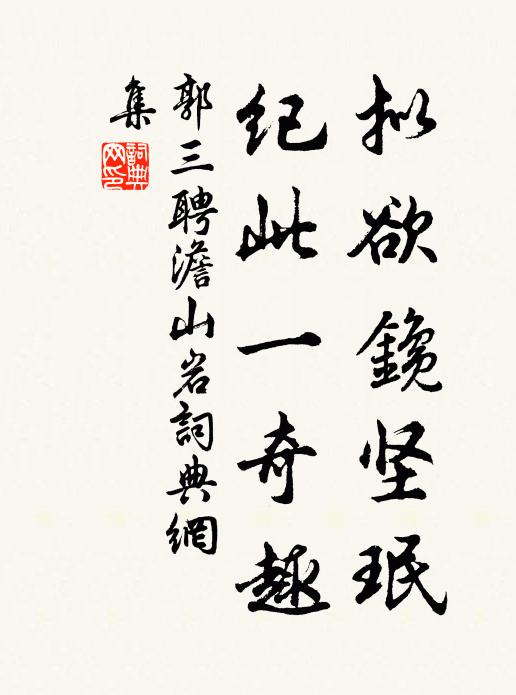 拟欲鑱坚珉
纪此一奇趣
郭三聘澹山岩詞典網
集
詞典
网印